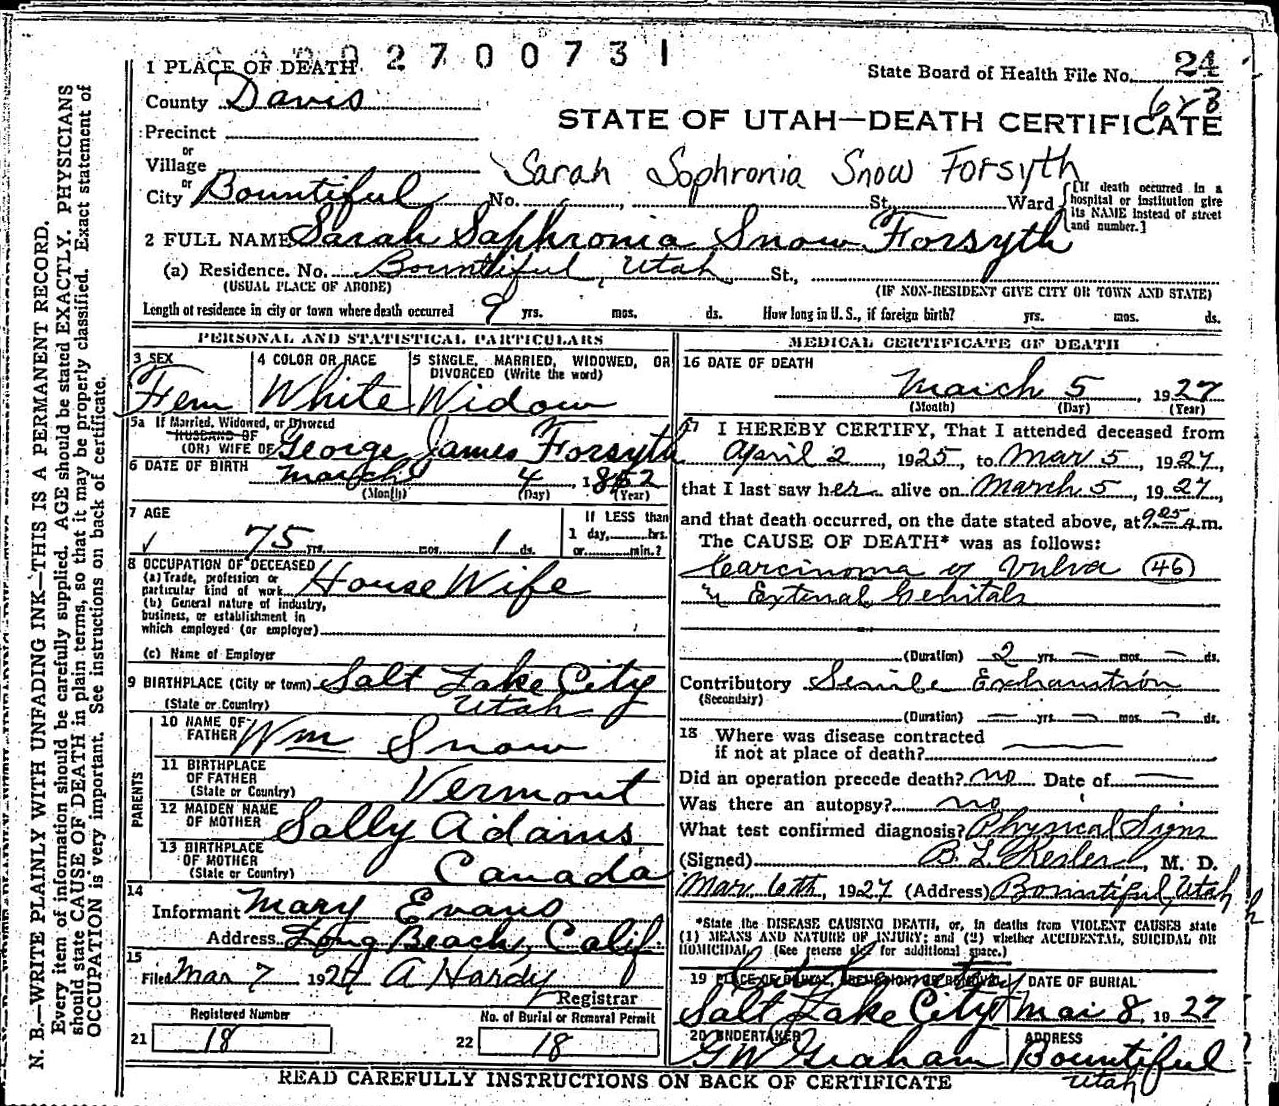 2700731
1 PLACE OF DEATH
State Board of Health File No. 24
County Davis
623
STATE OF UTAH—DEATH CERTIFICATE
Precinct
or
Village
Sarah Sophronia Snow Forsyth
or
City Bountiful No. St. Ward [If death occurred in a hospital or institution give its NAME instead of street and number.]
2 FULL NAME Sarah Saphronia Snow Forsyth
(a) Residence. No. Bountiful, Utah St.,
(USUAL PLACE OF ABODE) (IF NON-RESIDENT GIVE CITY OR TOWN AND STATE)
Length of residence in city or town where death occurred 9 yrs. mos. ds. How long in U. S., if foreign birth? yrs. mos. ds.
PERSONAL AND STATISTICAL PARTICULARS
3 SEX
Fem
4 COLOR OR RACE
White
5 SINGLE, MARRIED, WIDOWED, OR DIVORCED (Write the word)
Widow
5a If Married, Widowed, or Divorced
HUSBAND OF
(OR) WIFE OF George James Forsyth
6 DATE OF BIRTH
March 4 1852
(Month) (Day) (Year)
7 AGE
75 yrs. mos. 1 ds.
If LESS than
1 day, hrs.
or min.?
8 OCCUPATION OF DECEASED
(a) Trade, profession or
particular kind of work House Wife
(b) General nature of industry,
business, or establishment in
which employed (or employer)
(c) Name of Employer
9 BIRTHPLACE (City or town) Salt Lake City
(State or Country) Utah
PARENTS
10 NAME OF
FATHER Wm Snow
11 BIRTHPLACE
OF FATHER
(State or Country) Vermont
12 MAIDEN NAME
OF MOTHER Sally Adams
13 BIRTHPLACE
OF MOTHER
(State or Country) Canada
14
Informant Mary Evans
Address Long Beach, Calif
15
Filed Mar 7 1927 A Hardy
Registrar
Registered Number
21 18
No. of Burial or Removal Permit
22 18
MEDICAL CERTIFICATE OF DEATH
16 DATE OF DEATH
March 5 1927
(Month) (Day) (Year)
17 I HEREBY CERTIFY, That I attended deceased from
April 2, 1925, to Mar 5, 1927,
that I last saw her alive on March 5, 1927,
and that death occurred, on the date stated above, at 9 25 A m.
The CAUSE OF DEATH* was as follows:
Carcinoma of Vulva (46)
External Genitals
(Duration) 2 yrs. — mos. — ds.
Contributory Senile Exhaustion
(Secondary)
(Duration) — yrs. — mos. — ds.
18 Where was disease contracted
if not at place of death?
Did an operation precede death? no Date of —
Was there an autopsy? no
What test confirmed diagnosis? Physical Signs
(Signed) B. L. Kesler, M. D.
Mar. 6th, 1927 (Address) Bountiful, Utah
*State the DISEASE CAUSING DEATH, or, in deaths from VIOLENT CAUSES state
(1) MEANS AND NATURE OF INJURY; and (2) whether ACCIDENTAL, SUICIDAL OR
HOMICIDAL. (See reverse side for additional space.)
19 PLACE OF BURIAL, CREMATION OR REMOVAL
Salt Lake City
DATE OF BURIAL
Mar 8, 1927
20 UNDERTAKER
G W Graham
ADDRESS
Bountiful
Utah
READ CAREFULLY INSTRUCTIONS ON BACK OF CERTIFICATE
N. B.—WRITE PLAINLY WITH UNFADING INK—THIS IS A PERMANENT RECORD.
Every item of information should be carefully supplied. AGE should be stated EXACTLY. PHYSICIANS
should state CAUSE OF DEATH in plain terms, so that it may be properly classified. Exact statement of
OCCUPATION is very important. See instructions on back of certificate.